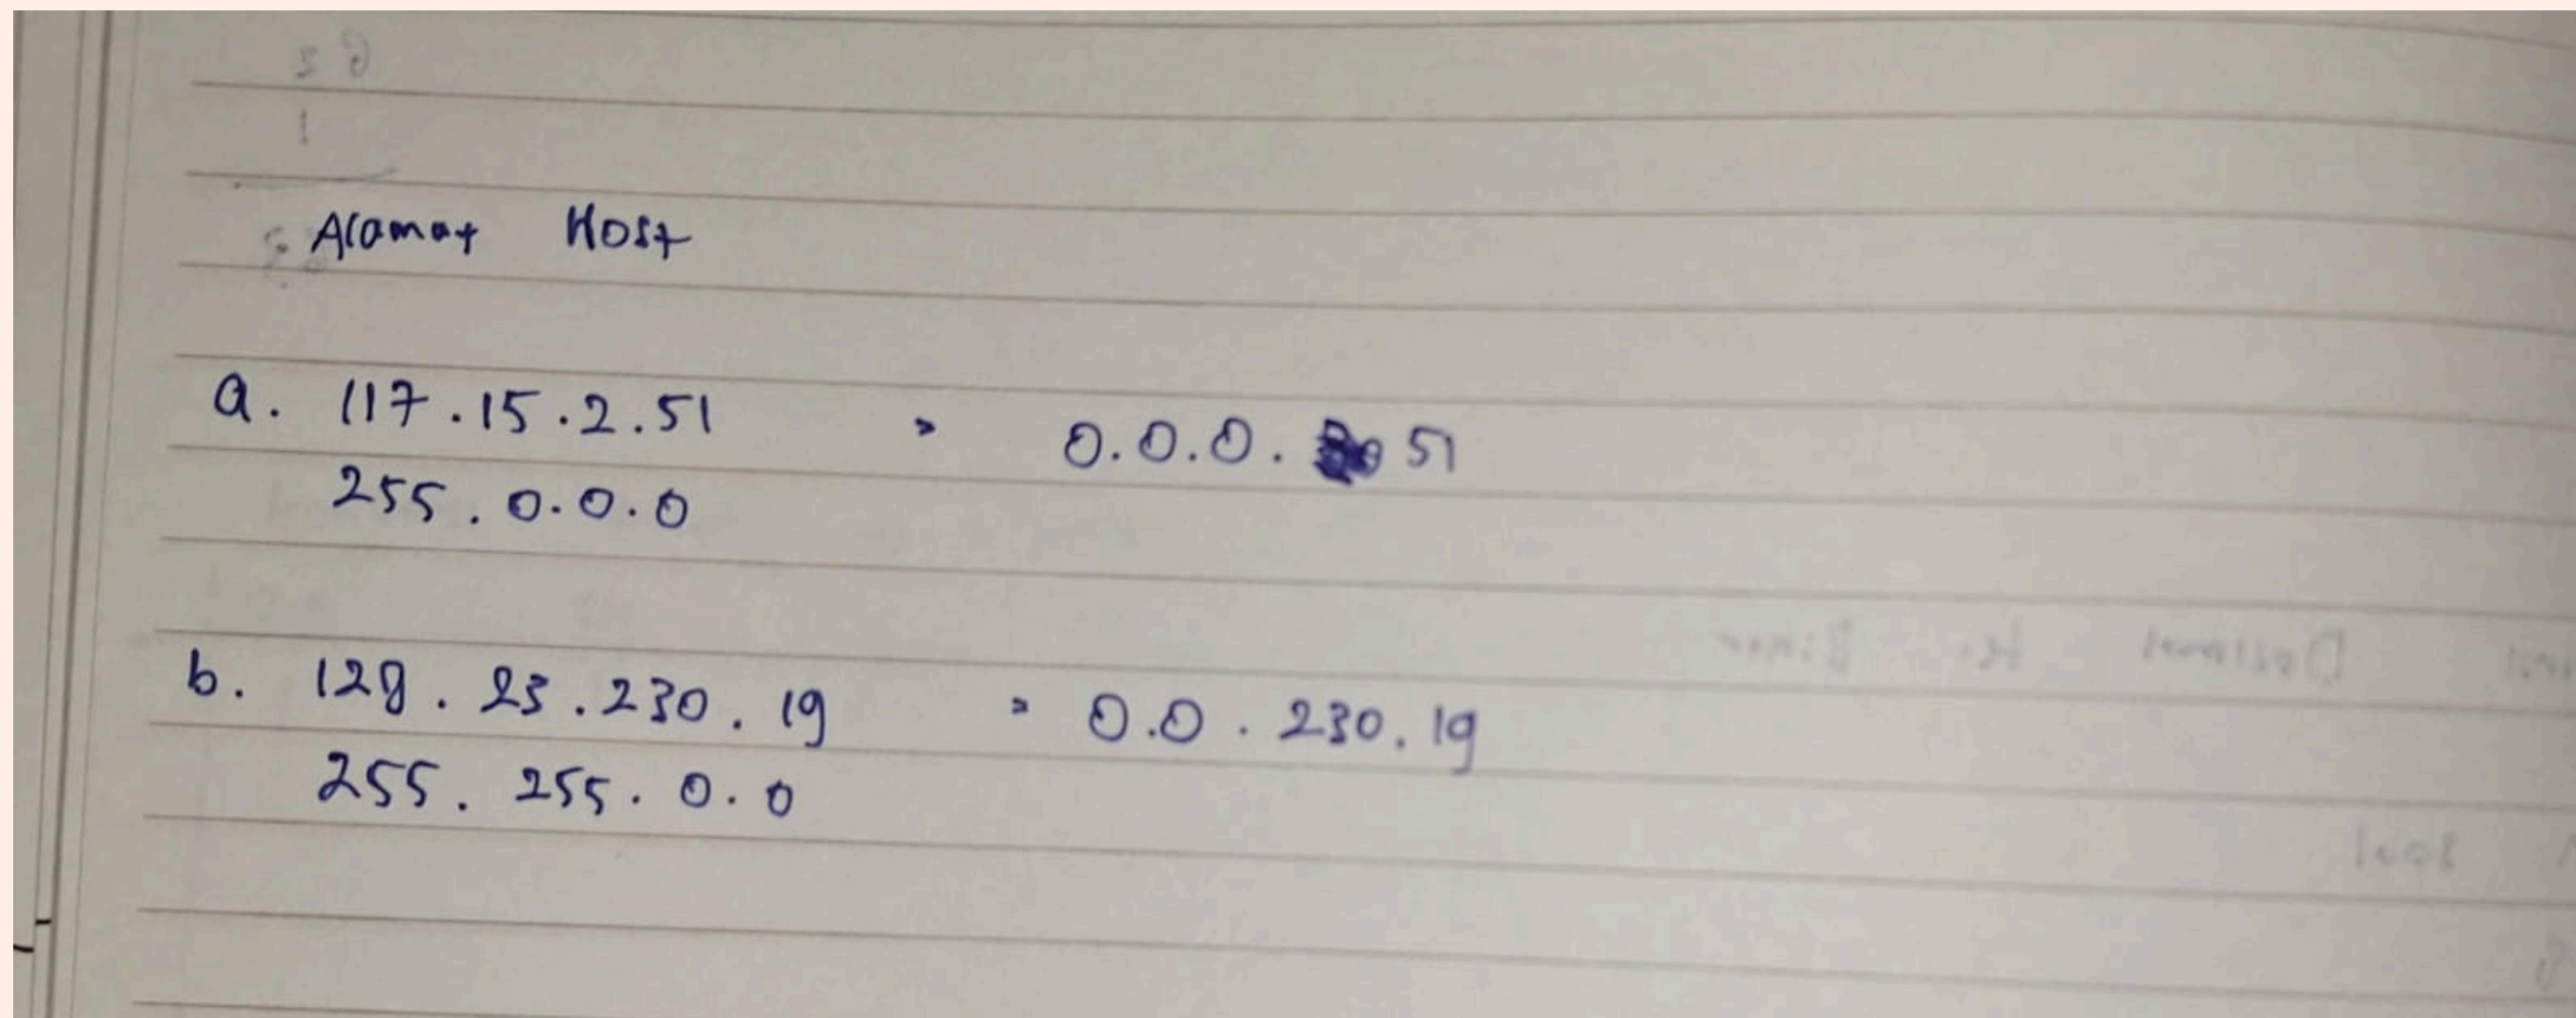 Alamat Host
a. 117.15.2.51 = 0.0.0. 51
255.0.0.0
b. 128.23.230.19 = 0.0.230.19
255.255.0.0